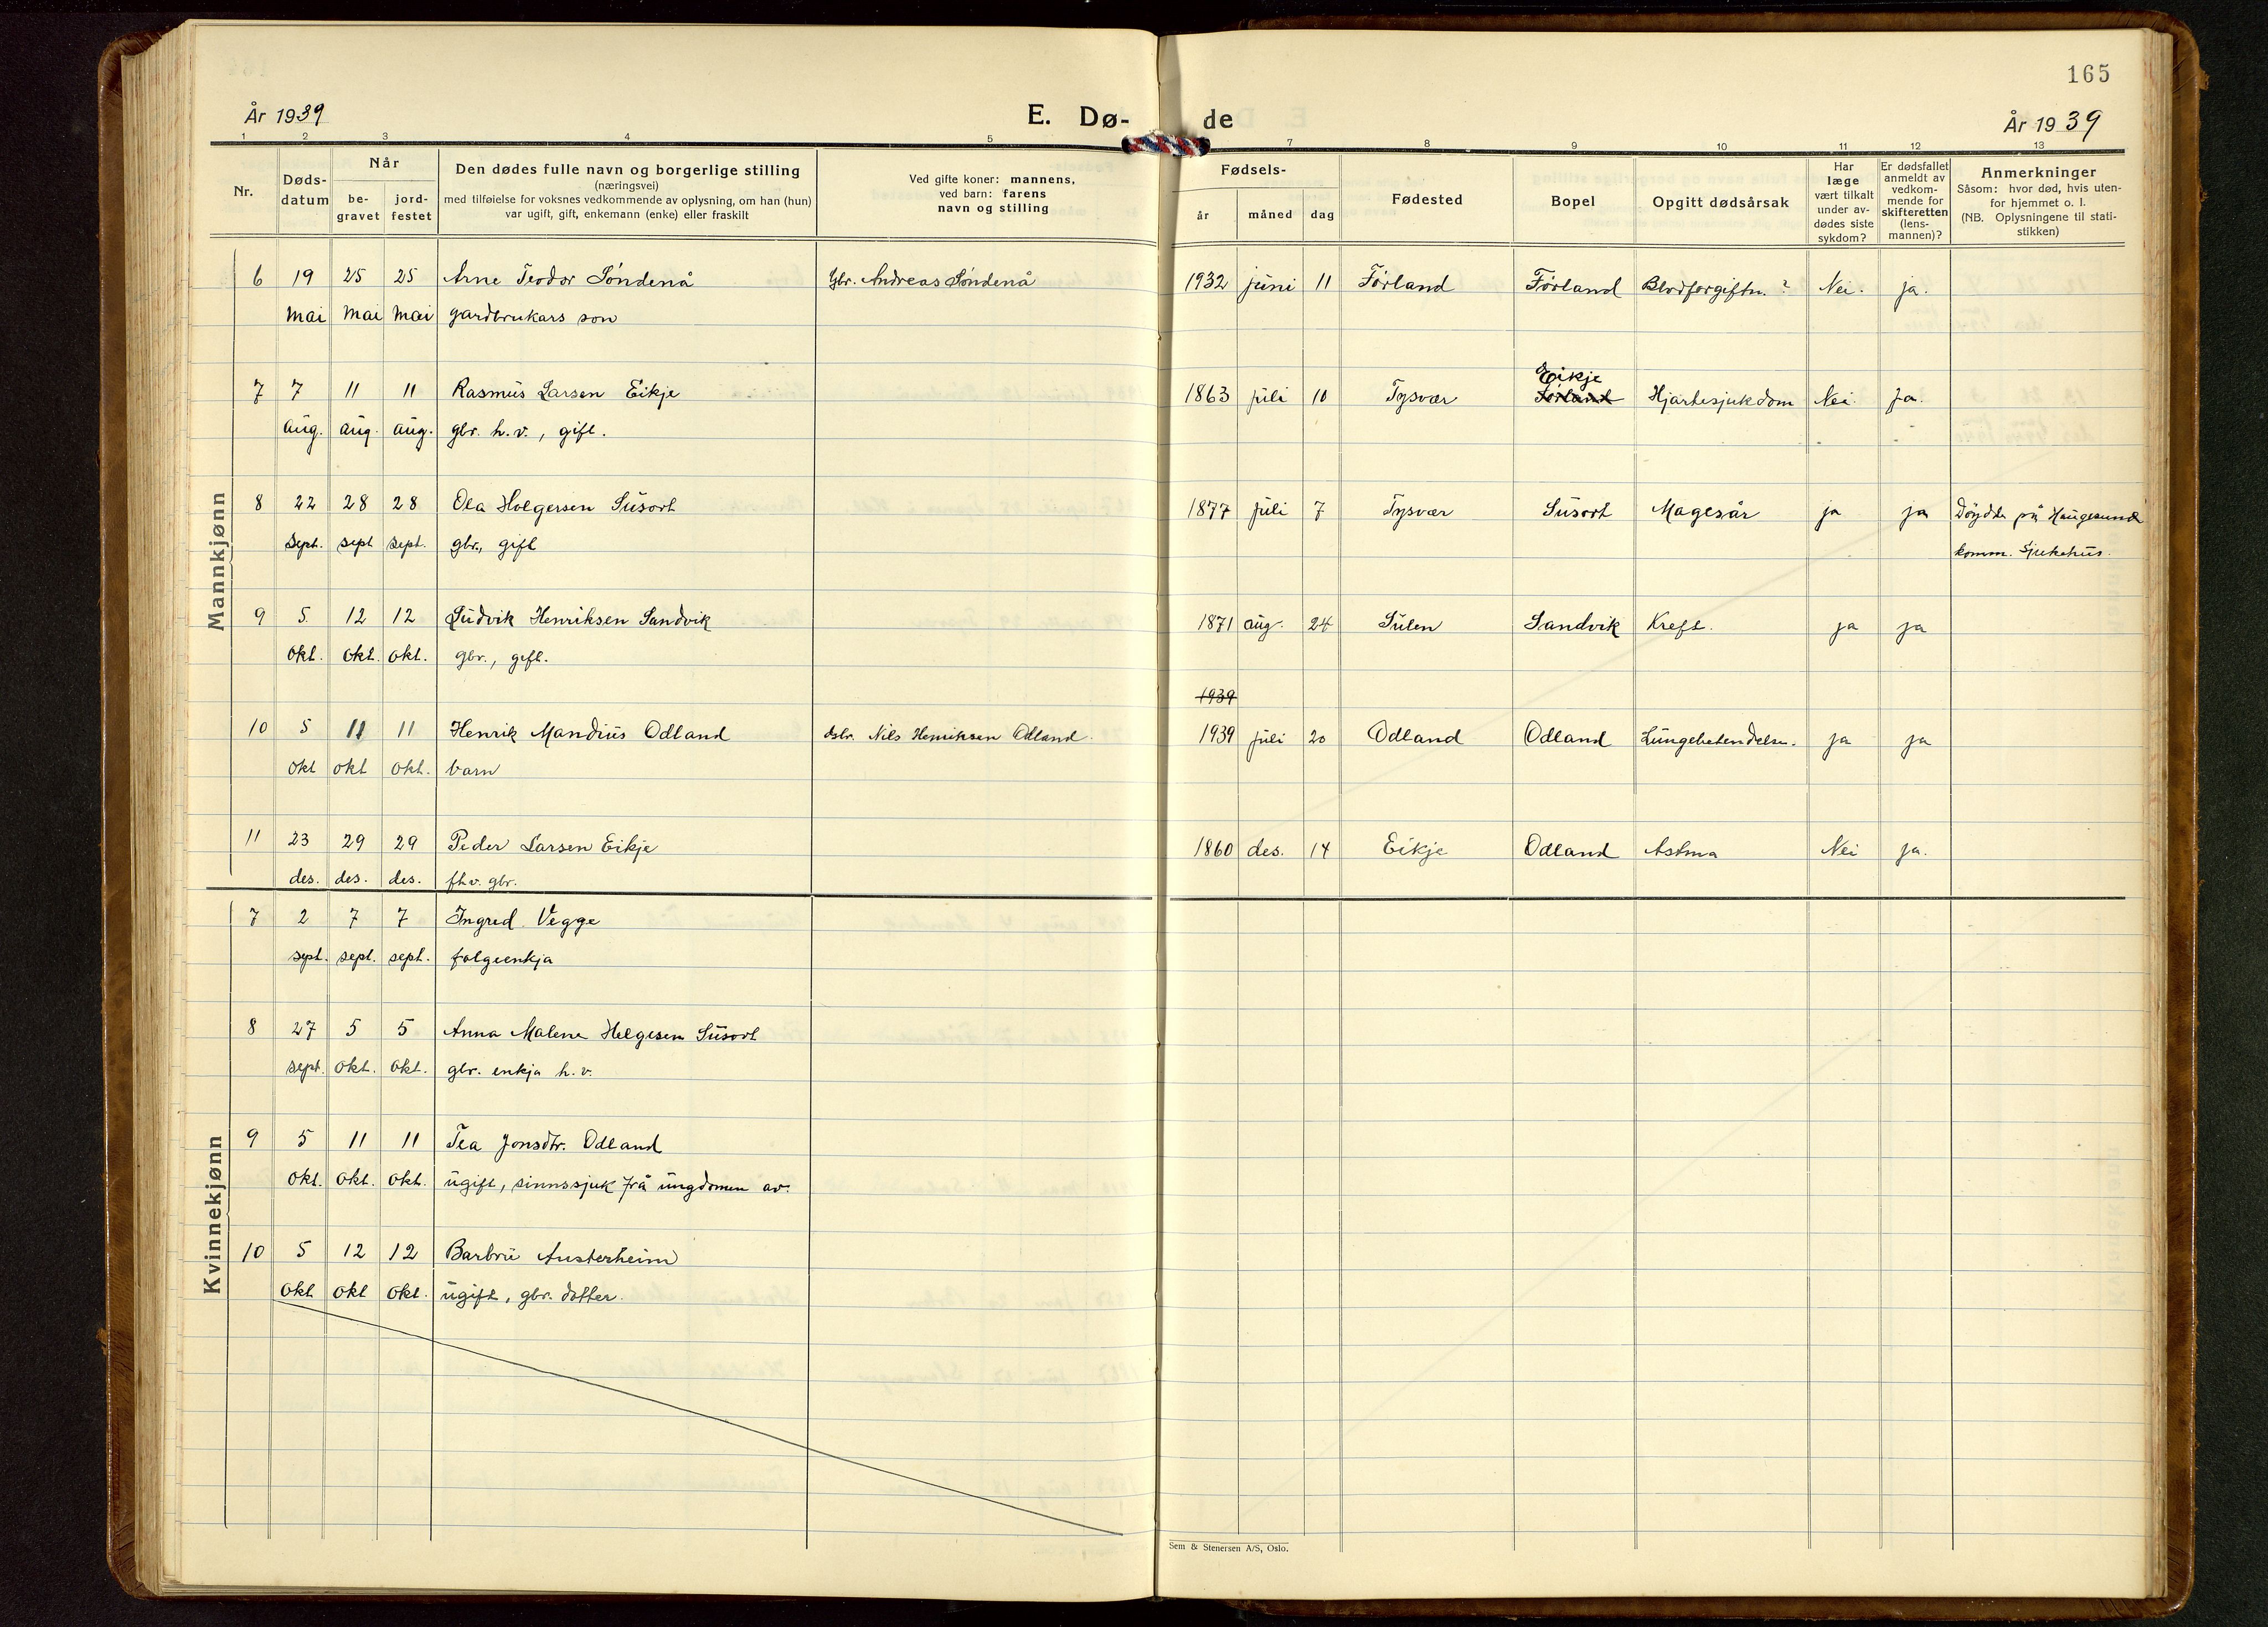 165
År 1939
E. Dø-
de
År 1939
1 2 3 4 5 7 8 9 10 11 12 13
Nr.
Døds-
datum
Når
be-
gravet
jord-
festet
Den dødes fulle navn og borgerlige stilling
(næringsvei)
med tilføielse for voksnes vedkommende av oplysning, om han (hun)
var ugift, gift, enkemann (enke) eller fraskilt
Ved gifte koner: mannens,
ved barn: farens
navn og stilling
Fødsels-
år måned dag
Fødested
Bopel
Opgitt dødsårsak
Har
læge
vært tilkalt
under av-
dødes siste
sykdom?
Er dødsfallet
anmeldt av
vedkom-
mende for
skifteretten
(lens-
mannen)?
Anmerkninger
Såsom: hvor død, hvis uten-
for hjemmet o. l.
(NB. Oplysningene til stati-
stikken)
Mannkjønn
6 19 25 25 Arne Teodor Søndenå Gbr. Andreas Søndenå 1932 juni 11 Førland Førland Blodforgiftn. ? Nei. ja.
mai mai mai gardbrukars son
Eikje
7 7 11 11 Rasmus Larsen Eikje 1863 juli 10 Tysvær Førland Hjartesjukdom Nei. Ja.
aug. aug. aug. gbr. h.v., gift.
8 22 28 28 Ola Holgersen Susort 1877 juli 7 Tysvær Susort Magesår ja ja Døydde på Haugesunds
sept. sept sept. gbr., gift komm. Sjukehus.
9 5. 12 12 Ludvik Henriksen Sandvik 1871 aug. 24 Sulen Sandvik Kreft. ja ja
okt. okt. okt. gbr., gift.
1939
10 5 11 11 Henrik Mandius Odland Nils Henriksen Odland. 1939 juli 20 Odland Odland Lungebetendelse. ja ja
okt okt okt. barn
11 23 29 29 Peder Larsen Eikje 1860 des. 14 Eikje Odland Astma Nei ja.
des. des. des. fh.v. gbr.
Kvinnekjønn
7 2 7 7 Ingred Vegge
sept. sept. sept. folgeenkja
8 27 5 5 Anna Malene Helgesen Susort
sept. okt. okt. gbr. enkja h.v.
9 5 11 11 Tea Jonsdtr. Odland
okt. okt. okt. ugift, sinnssjuk frå ungdomen av.
10 5 12 12 Barbru Austerheim
okt okt okt. ugift, gbr. dotter.
Sem & Stenersen A/S, Oslo.